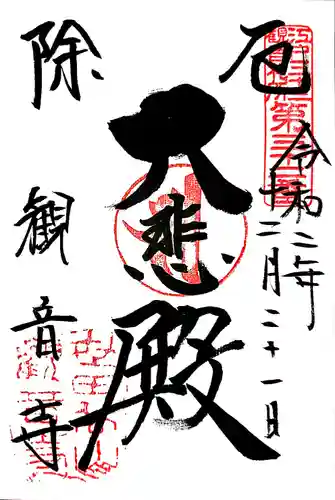 厄
令和二年
十二月二十一日
大悲殿
除
観音寺